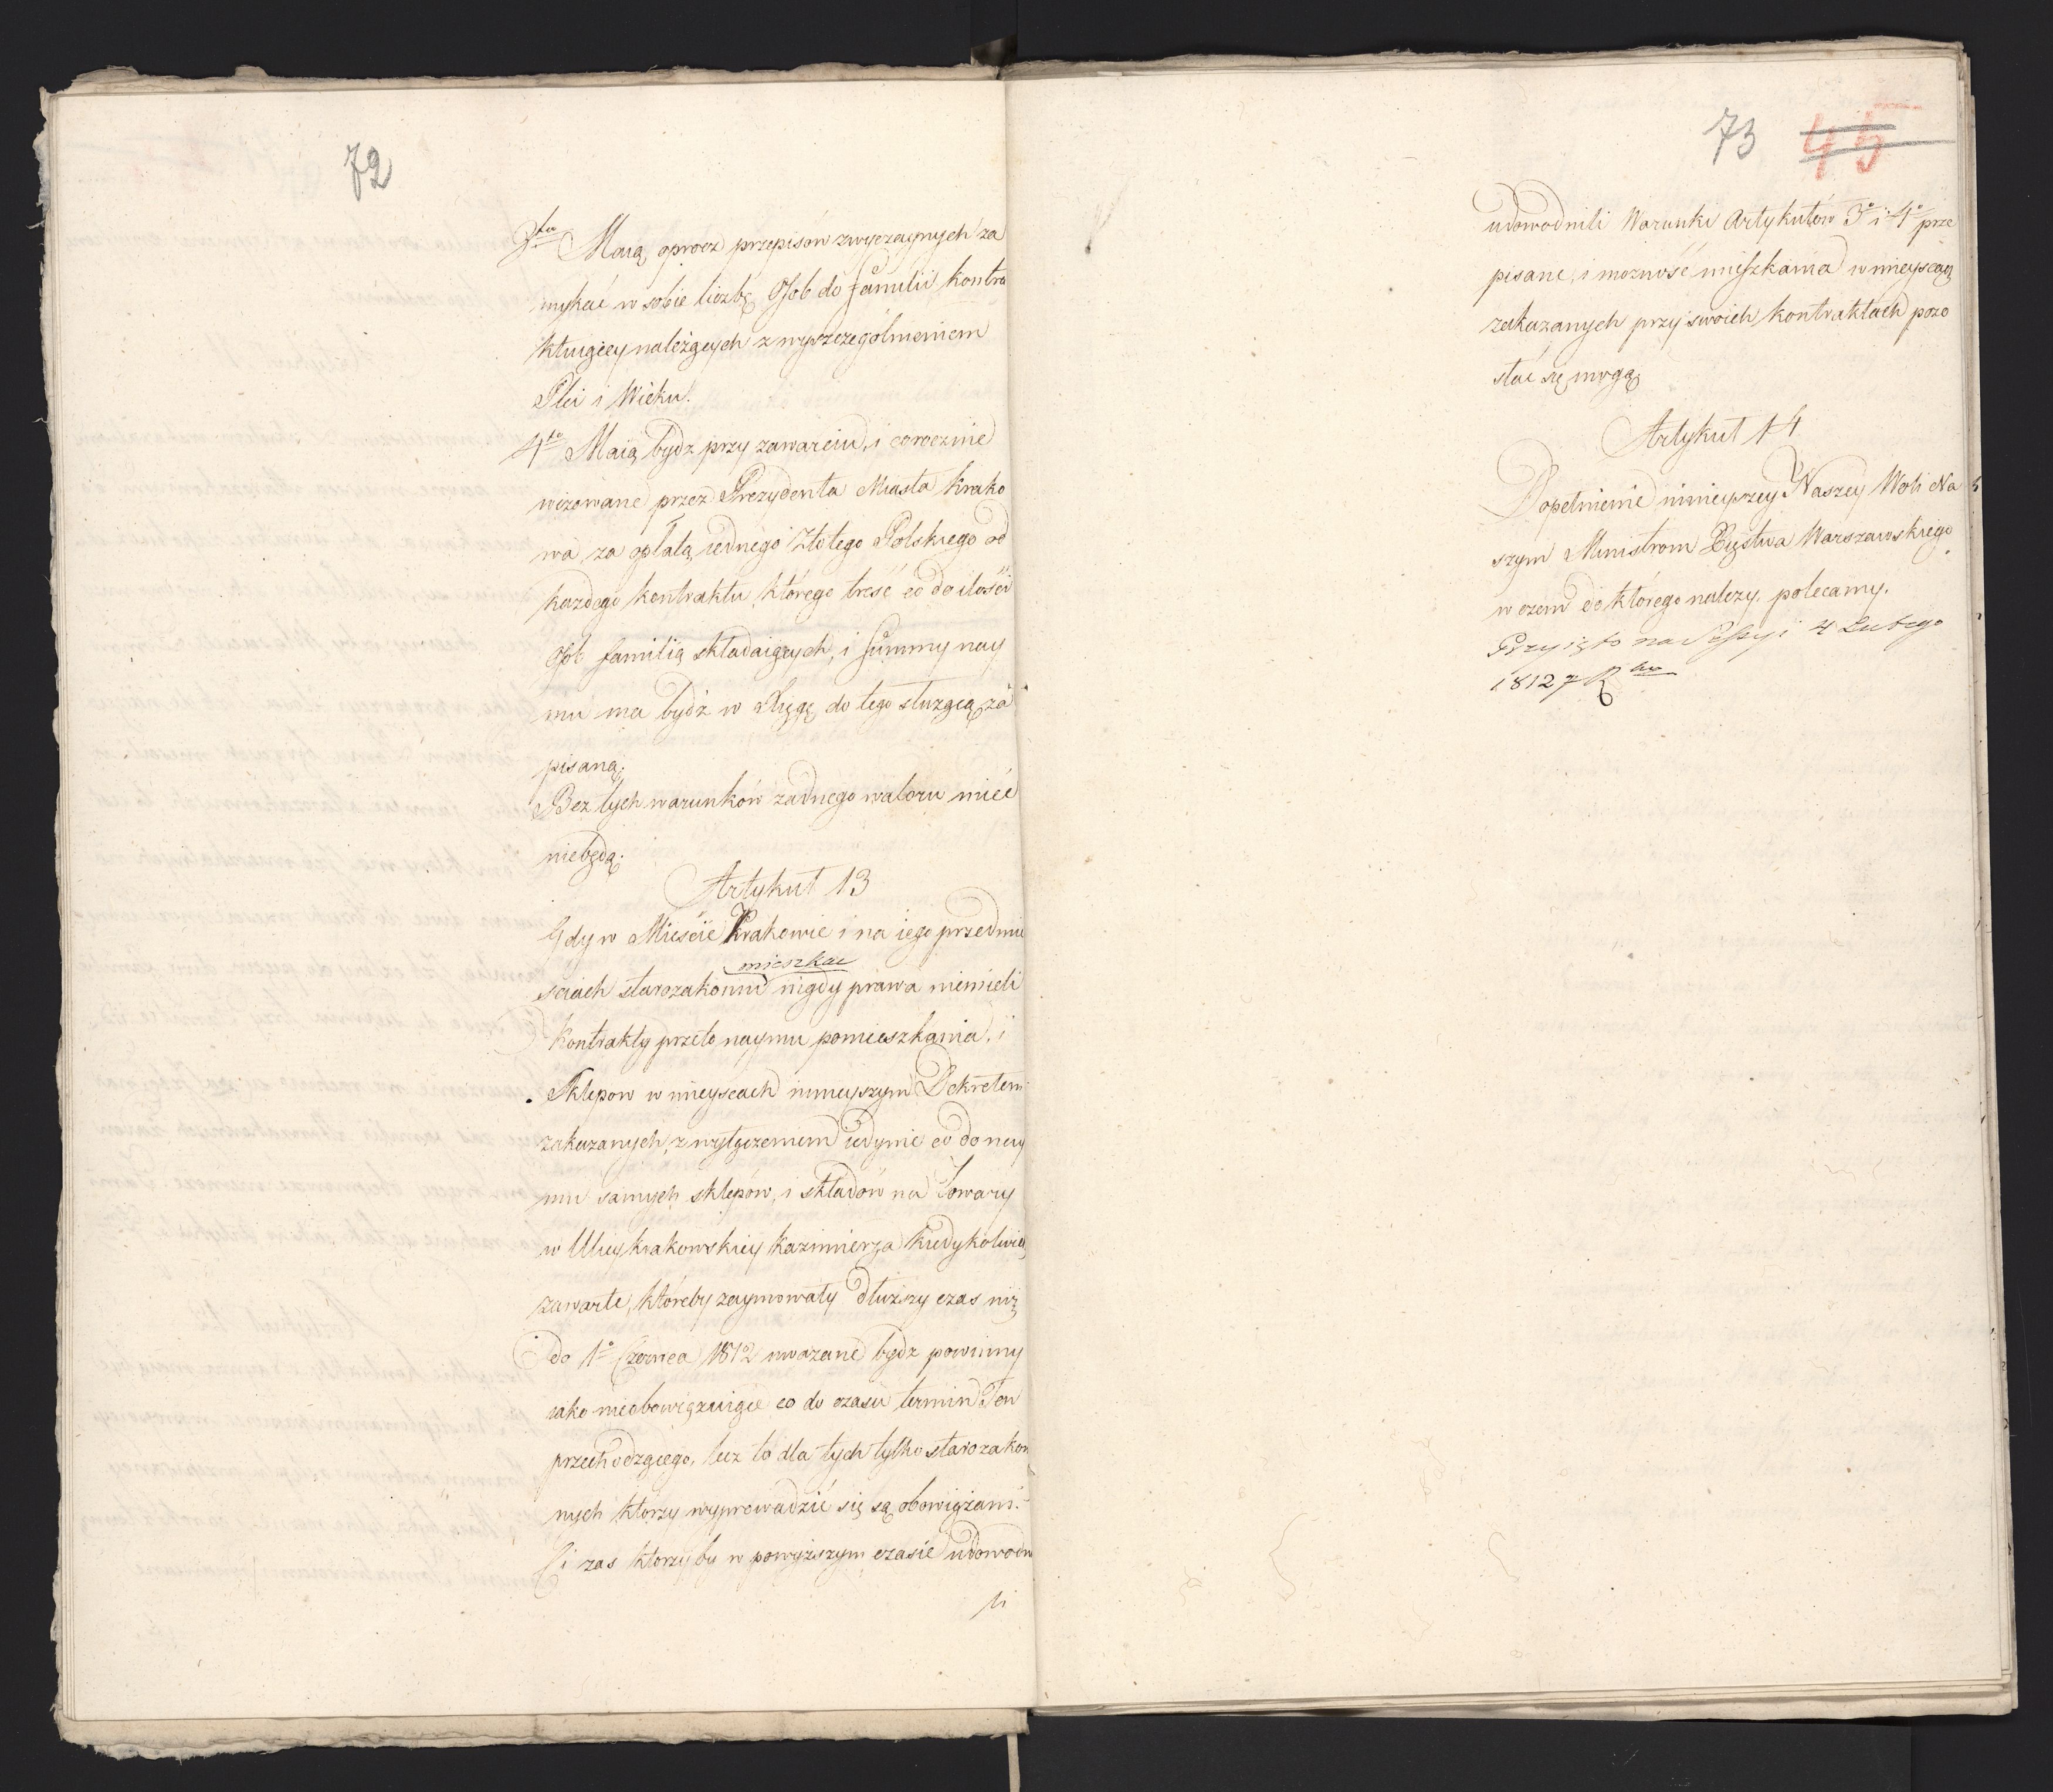 72
3tio Maią oprocz przepisów zwyczaynych za
mykać w sobie liczbę Osob do familii kontra
ktuiącey należących z wyszczegolnieniem
Płci i Wieku.
4to Maią bydz przy zawarciu, i corocznie
wizowane przez Prezydenta Miasta Krako
wa, za opłatą iednego Złotego Polskiego od
każdego kontraktu, którego treść co do ilości
Osob familią składaiących, i summy nay
mu ma bydź w Xięgę do tego służącą za
pisaną.
Bez tych warunków żadnego waloru mieć
niebędą.
Artykuł 13
Gdy w Mieście Krakowie i na iego przedmie
mieszkac
sciach starozakonni nigdy prawa niemieli
Kontrakty przeto naymu pomieszkania, i
Sklepow w mieyscach ninieyszym Dekretem
zakazanych, z wyłączeniem iedynie co do nay
mu samych sklepów, i składów na Towary
w Ulicy Krakowskiey Kazimierza kiedykolwiek
zawarte, któreby zaymowały dłuższy czas niż
do 1o Czerwca 1812 uwazane bydz powinny
iako nieobowięzuiące co do czasu termin Ten
przechodzącego, lecz to dla tych tylko starozakon
nych ktorzy wyprowadzić się są obowiązani.
Ci zas ktorzy by w powyższym czasie udowodni
li
73 45
udowodnili Warunki Artykułów 3o i 4o prze
pisane, i możność mieszkania w mieyscach
zakazanych przy swoich kontraktach pozo
stać się mogą.
Artykuł 14
Dopełnienie ninieyszey Naszey Woli Na
szym Ministrom Xięstwa Warszawskiego
w czem do którego należy, polecamy.
Przyięto na Sessyi 4 Lutego
1812 r